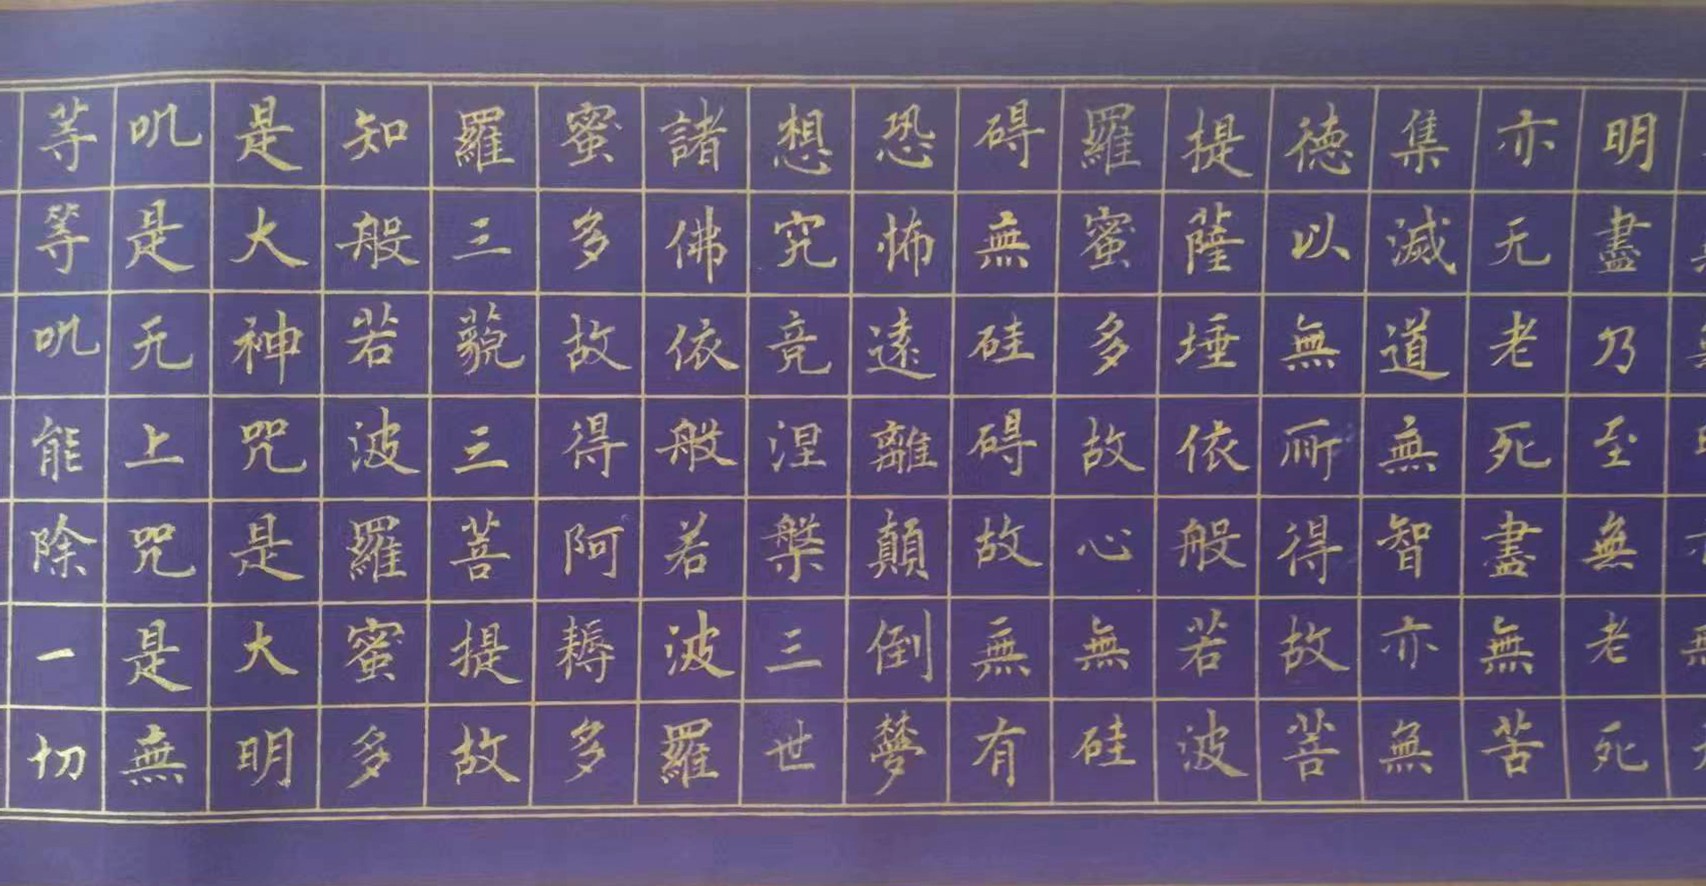 明盡乃至無老死
亦无老死盡無苦
集滅道無智亦無
德以無所得故菩
提薩埵依般若波
羅蜜多故心無硅
碍無硅碍故無有
恐怖遠離顛倒夢
想究竟涅槃三世
諸佛依般若波羅
蜜多故得阿耨多
羅三藐三菩提故
知般若波羅蜜多
是大神咒是大明
呪是无上咒是無
等等呪能除一切